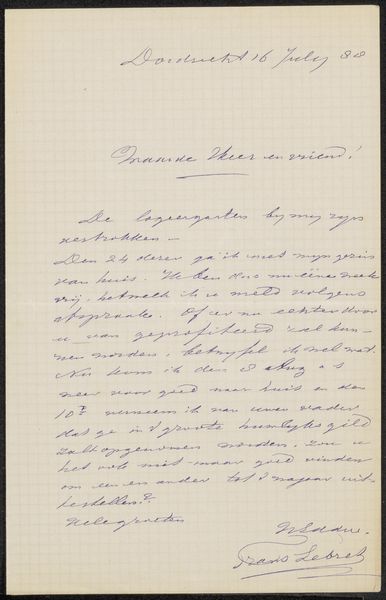 Dordrecht 16 July 88
Waarde Heer en vriend!
De logeergasten by my zyn
vertrokken —
Den 24 dezer ga ik met myn gezin
van huis. Ik ben dus nu eene week
vrij, hetwelk ik u meld volgens
afspraak. Of er nu echter door
u van geprofiteerd zal kun-
nen worden, betwyfel ik wel wat.
Nu kom ik den 8 Aug a s
weer voor goed naar huis en den
10e verneem ik van uwen vader
dat ge in 't groote huwlyksgild
zult opgenomen worden. Zou u
het ook niet maar goed vinden
om een en ander tot 't najaar uit
te stellen?
Vele groeten
Frans Lebret